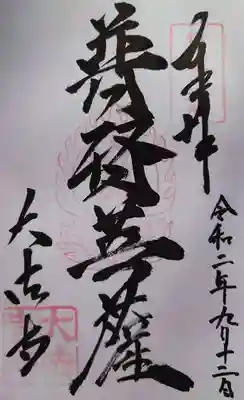 奉拝
令和二年九月十二日
普賢菩薩
大法寺